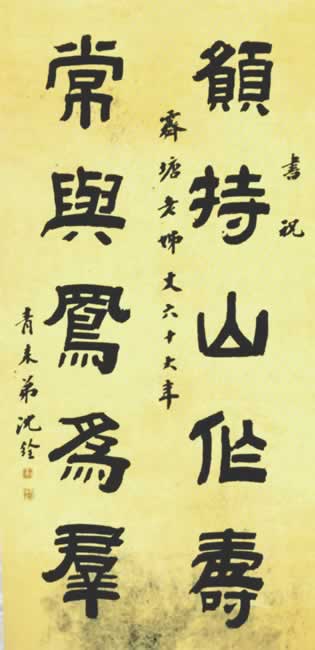 書祝
願持山作壽
霽塘老姊丈六十大年
常與鳳爲羣
青來弟沈銓